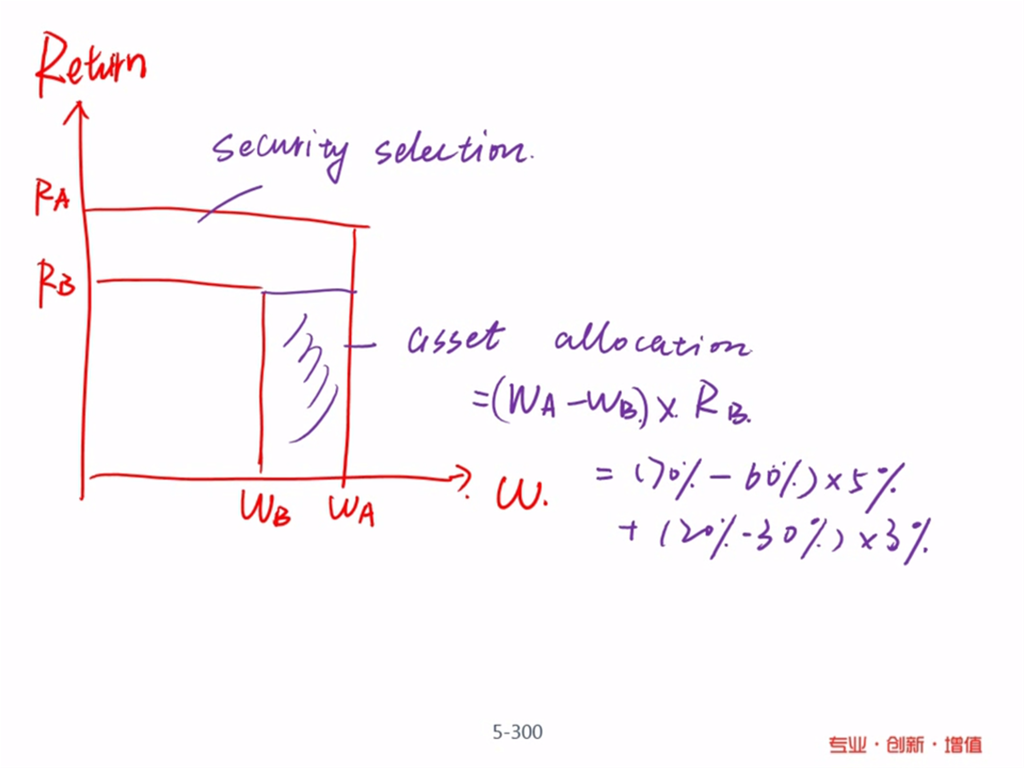 Return
security selection.
RA
RB
asset allocation
=(WA-WB.)×.RB.
=(70%-60%)×5%
+(20%-30%)×3%.
WB WA W.
5-300
专业·创新·增值